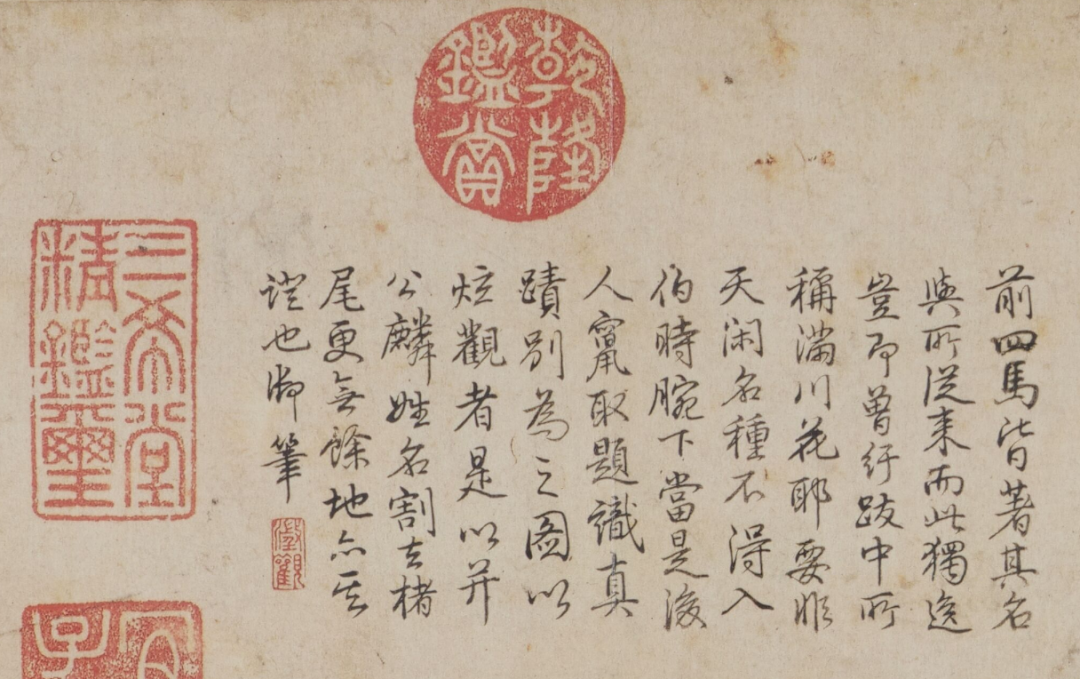 乾隆鑑賞
前四馬皆著其名
與所從来而此獨逸
豈即曾紆跋中所
稱滿川花耶要非
天闲名種不得入
伯時腕下當是後
人竄取題識真
蹟别為之圖以
炫觀者是以并
公麟姓名割去楮
尾更無餘地亦其
證也御筆
澂觀
三希堂
精鑑璽
宜
子